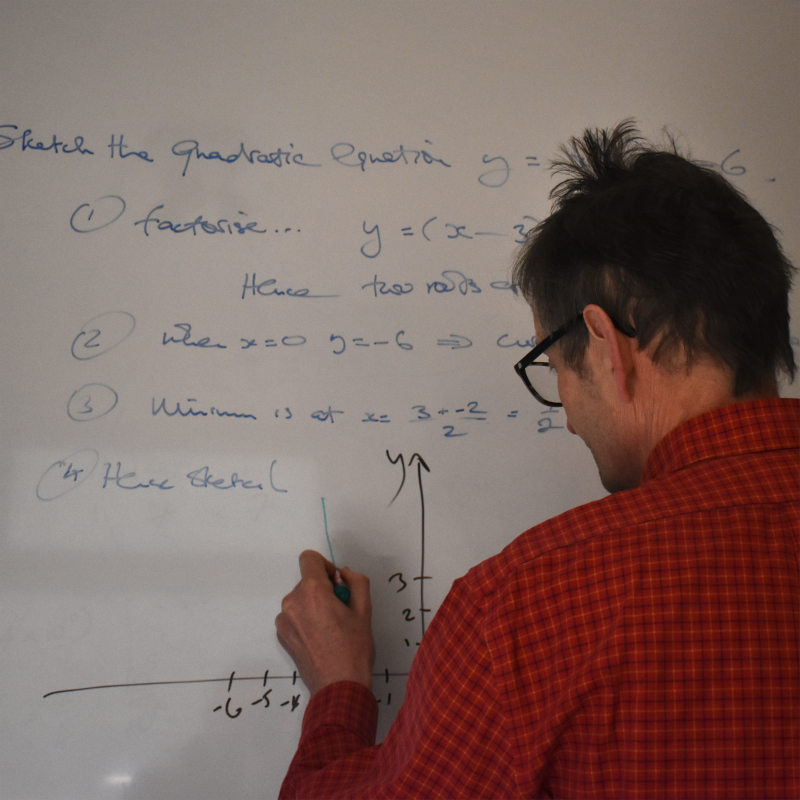 Sketch the Quadratic Equation y = -6.
① factorise... y = (x - 3)
Hence two roots
② When x=0 y=-6 ⇒ cu
③ Minimum is at x= 3+-2/2 = 1/2
④ Hence sketch
y
3
2
1
-6 -5 -4 -1